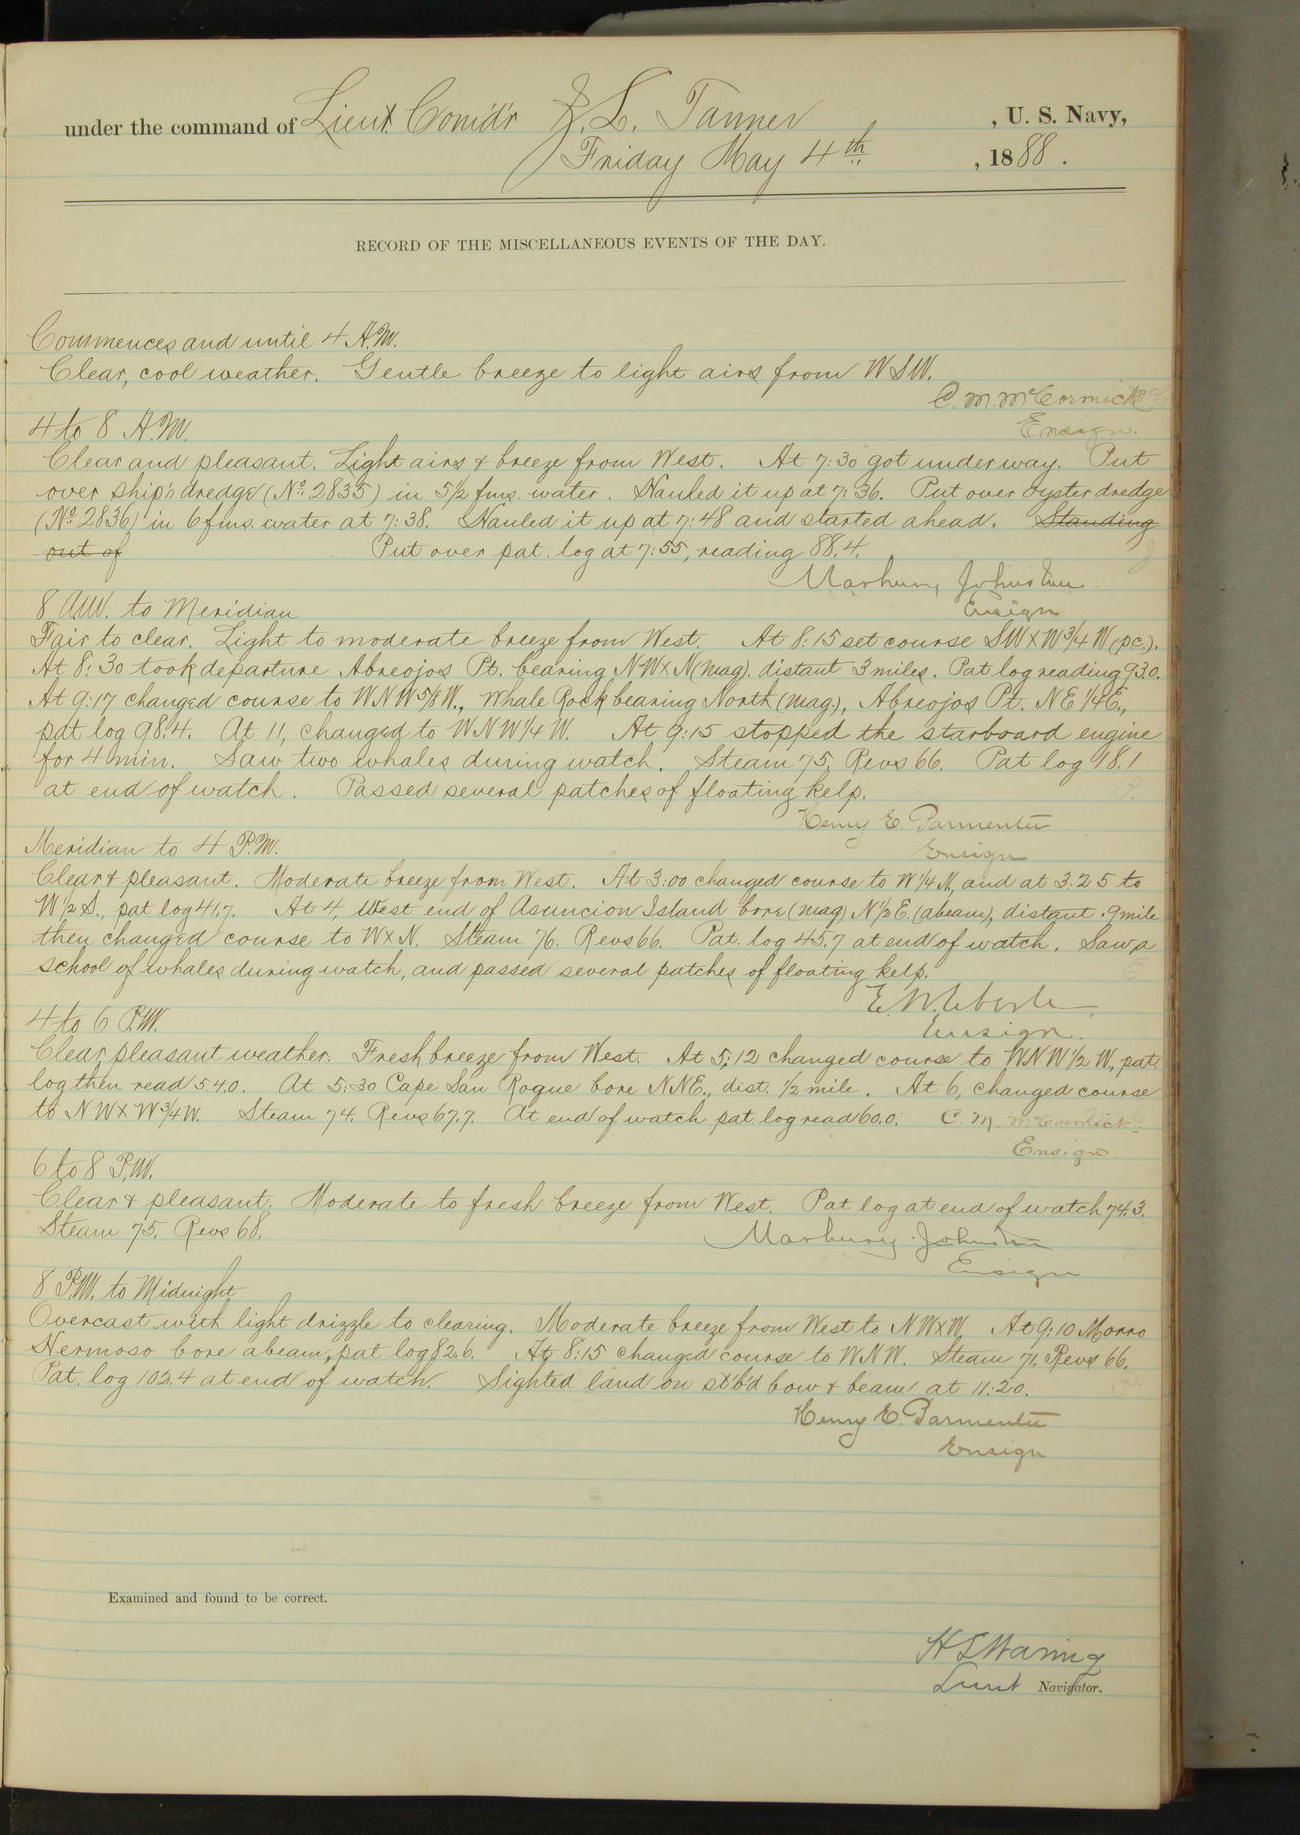 under the command of Lieut. Comd'r Z. L. Tanner, U. S. Navy,
Friday May 4th, 1888.
RECORD OF THE MISCELLANEOUS EVENTS OF THE DAY.
Commences and until 4 A.M.
Clear, cool weather. Gentle breeze to light airs from WSW.
C. M. McCormick
4 to 8 A.M.
Ensign.
Clear and pleasant. Light airs & breeze from West. At 7:30 got underway. Put
over ship's dredge (No. 2835) in 5 1/2 fms. water. Hauled it up at 7:36. Put over oyster dredge
(No. 2836) in 6 fms. water at 7:38. Hauled it up at 7:48 and started ahead. Standing
out of Put over pat. log at 7:55, reading 88.4.
Marbury Johnston
Ensign
8 A.M. to Meridian
Fair to clear. Light to moderate breeze from West. At 8:15 set course SWxW 3/4 W (p.c.).
At 8:30 took departure Abreojos Pt. bearing NWxN (mag). distant 3 miles. Pat log reading 93.0.
At 9:17 changed course to WNW 5/8 W., Whale Rock bearing North (mag.), Abreojos Pt. NE 1/4 E.,
pat log 98.4. At 11, changed to WNW 1/4 W. At 9:15 stopped the starboard engine
for 4 min. Saw two whales during watch. Steam 75. Revs 66. Pat log 18.1
at end of watch. Passed several patches of floating kelp.
Henry E. Parmenter
Ensign
Meridian to 4 P.M.
Clear & pleasant. Moderate breeze from West. At 3:00 changed course to W 1/4 N, and at 3:25 to
W 1/2 S., pat log 41.7. At 4, West end of Asuncion Island bore (mag) N 1/2 E. (abeam), distant .9 mile
then changed course to WxN. Steam 76. Revs 66. Pat. log 45.7 at end of watch. Saw a
school of whales during watch, and passed several patches of floating kelp.
E. W. Eberle
Ensign.
4 to 6 P.M.
Clear, pleasant weather. Fresh breeze from West. At 5:12 changed course to WNW 1/2 W, pat.
log then read 54.0. At 5:30 Cape San Roque bore NNE., dist. 1/2 mile. At 6, changed course
to NWxW 3/4 W. Steam 74. Revs 67.7. At end of watch pat. log read 60.0. C. M. McCormick
Ensign.
6 to 8 P.M.
Clear & pleasant. Moderate to fresh breeze from West. Pat log at end of watch 74.3.
Steam 75. Revs 68.
Marbury Johnston
Ensign
8 P.M. to Midnight
Overcast with light drizzle to clearing. Moderate breeze from West to NWxW. At 9:10 Morro
Hermoso bore abeam, pat log 82.6. At 8:15 changed course to WNW. Steam 71. Revs 66.
Pat. log 102.4 at end of watch. Sighted land on st'b'd bow & beam at 11:20.
Henry E. Parmenter
Ensign
Examined and found to be correct.
H S Waring
Lieut Navigator.